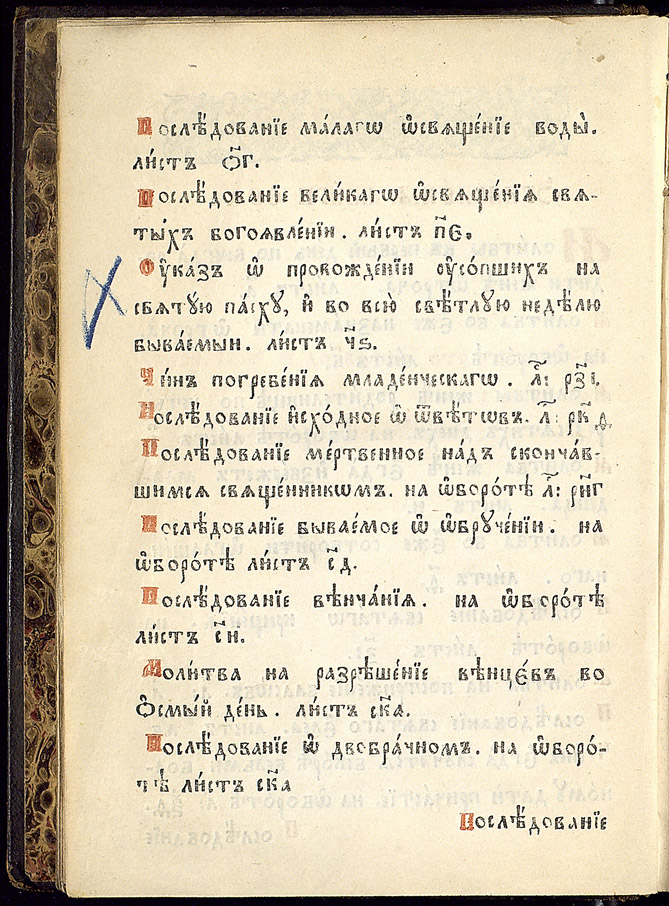 Послѣ́дованїе ма́лагѡ ѡ҆свѧще́нїе воды̀.
ли́стъ ѻ҃г.
Послѣ́дованїе вели́кагѡ ѡ҆свѧще́нїѧ свѧ-
ты́хъ богоѧвле́нїи. ли́стъ п҃є.
Оу҆ка́зъ ѡ провожде́нїи оу҆со́пшихъ на
свѧту́ю па́сху, и҆ во всю̀ свѣ́тлую недѣ́лю
быва́емыи. ли́стъ ч҃ѕ.
Чи́нъ погребе́нїѧ младе́нческагѡ. л҃: рз҃і.
Послѣ́дованїе и҆схо́дное ѡ҆ ѿвѣ́тѡвъ. л҃: рк҃д
Послѣ́дованїе ме́ртвенное над̾ сконча́в-
шимсѧ свѧще́нникѡмъ. на ѡ҆боро́тѣ л҃: рн҃г
Послѣ́дованїе быва́емое ѡ҆ ѡ҆брꙋче́нїи. на
ѡ҆боро́тѣ ли́стъ с҃д.
Послѣ́дованїе вѣнча́нїѧ. на ѡ҆боро́тѣ
ли́стъ с҃и.
Моли́тва на разрѣше́нїе вѣнцє́въ во
ѻ҆смы́й де́нь. ли́стъ ск҃а.
Послѣ́дованїе ѡ҆ двобра́чномъ. на ѡ҆боро́-
тѣ ли́стъ ск҃а
Послѣ́дованїе